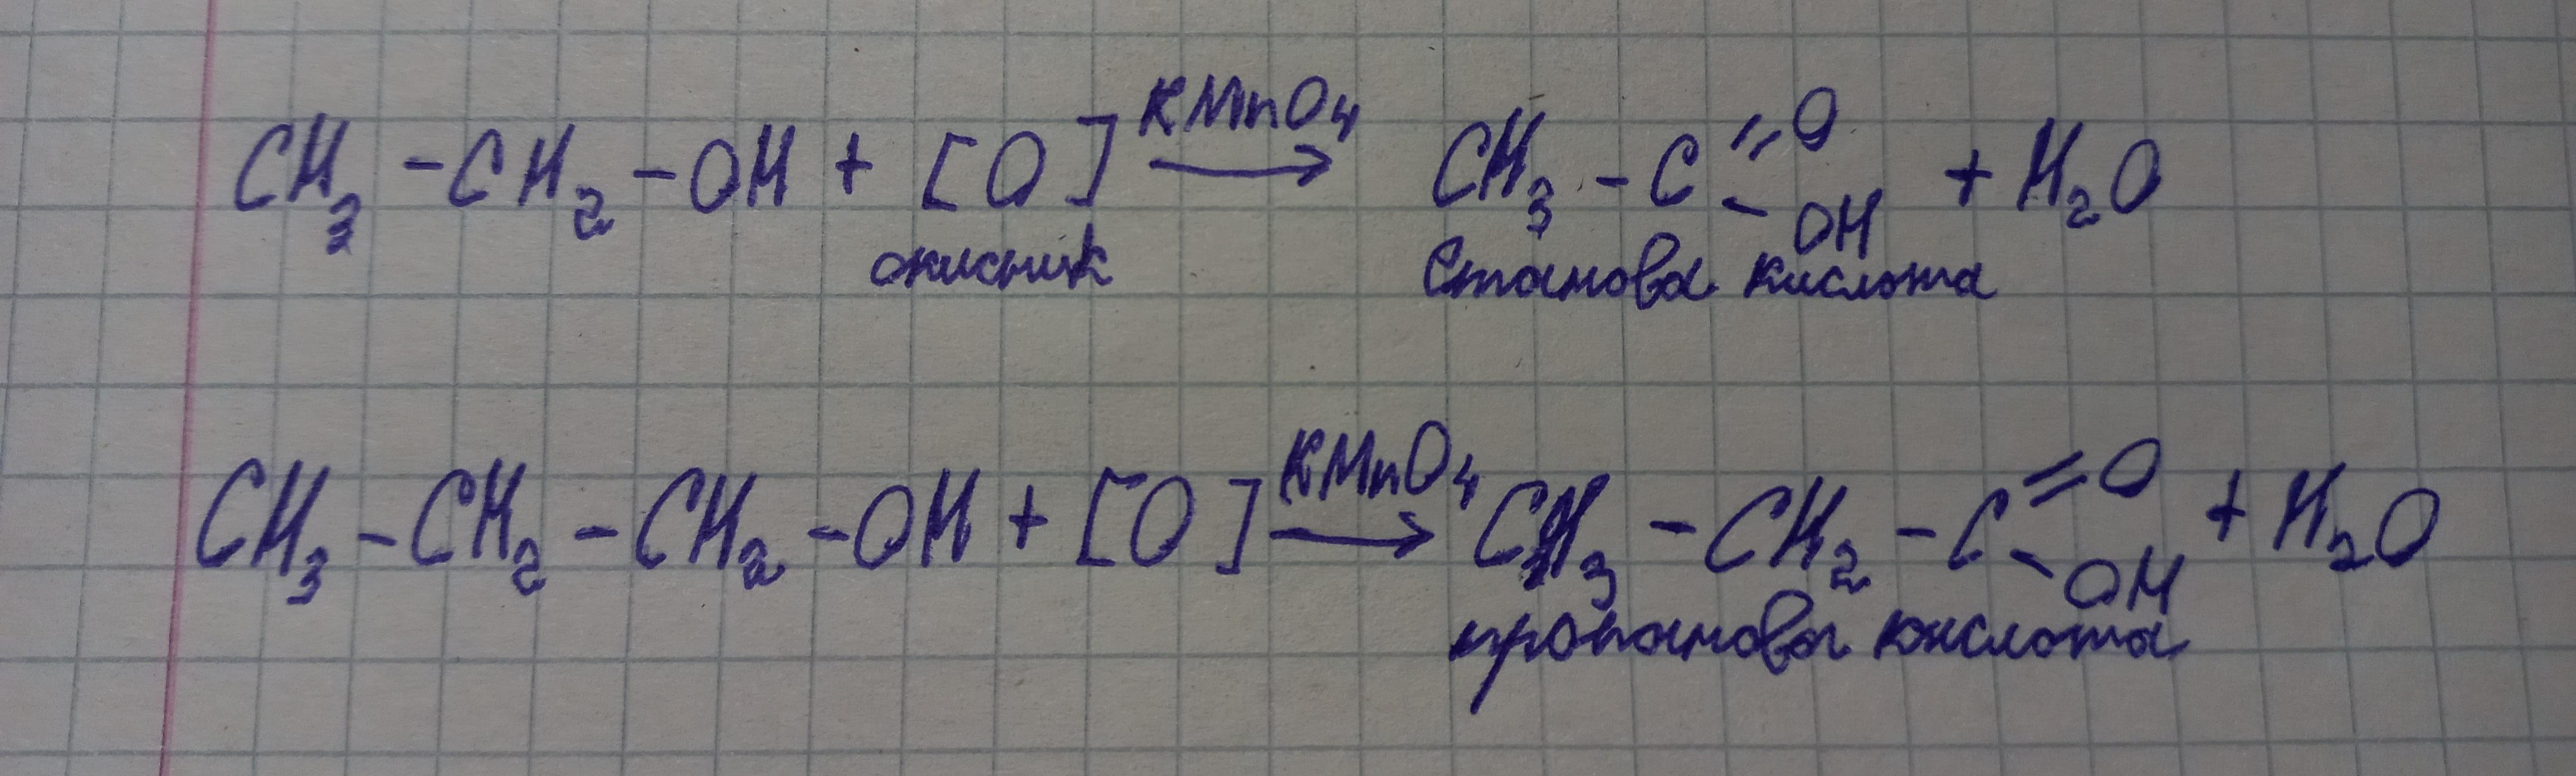 CH₃ - CH₂ - OH + [O] KMnO₄ → CH₃ - C =O - OH + H₂O
окисник етанова кислота
CH₃ - CH₂ - CH₂ - OH + [O] KMnO₄ → CH₃ - CH₂ - C =O - OH + H₂O
пропанова кислота